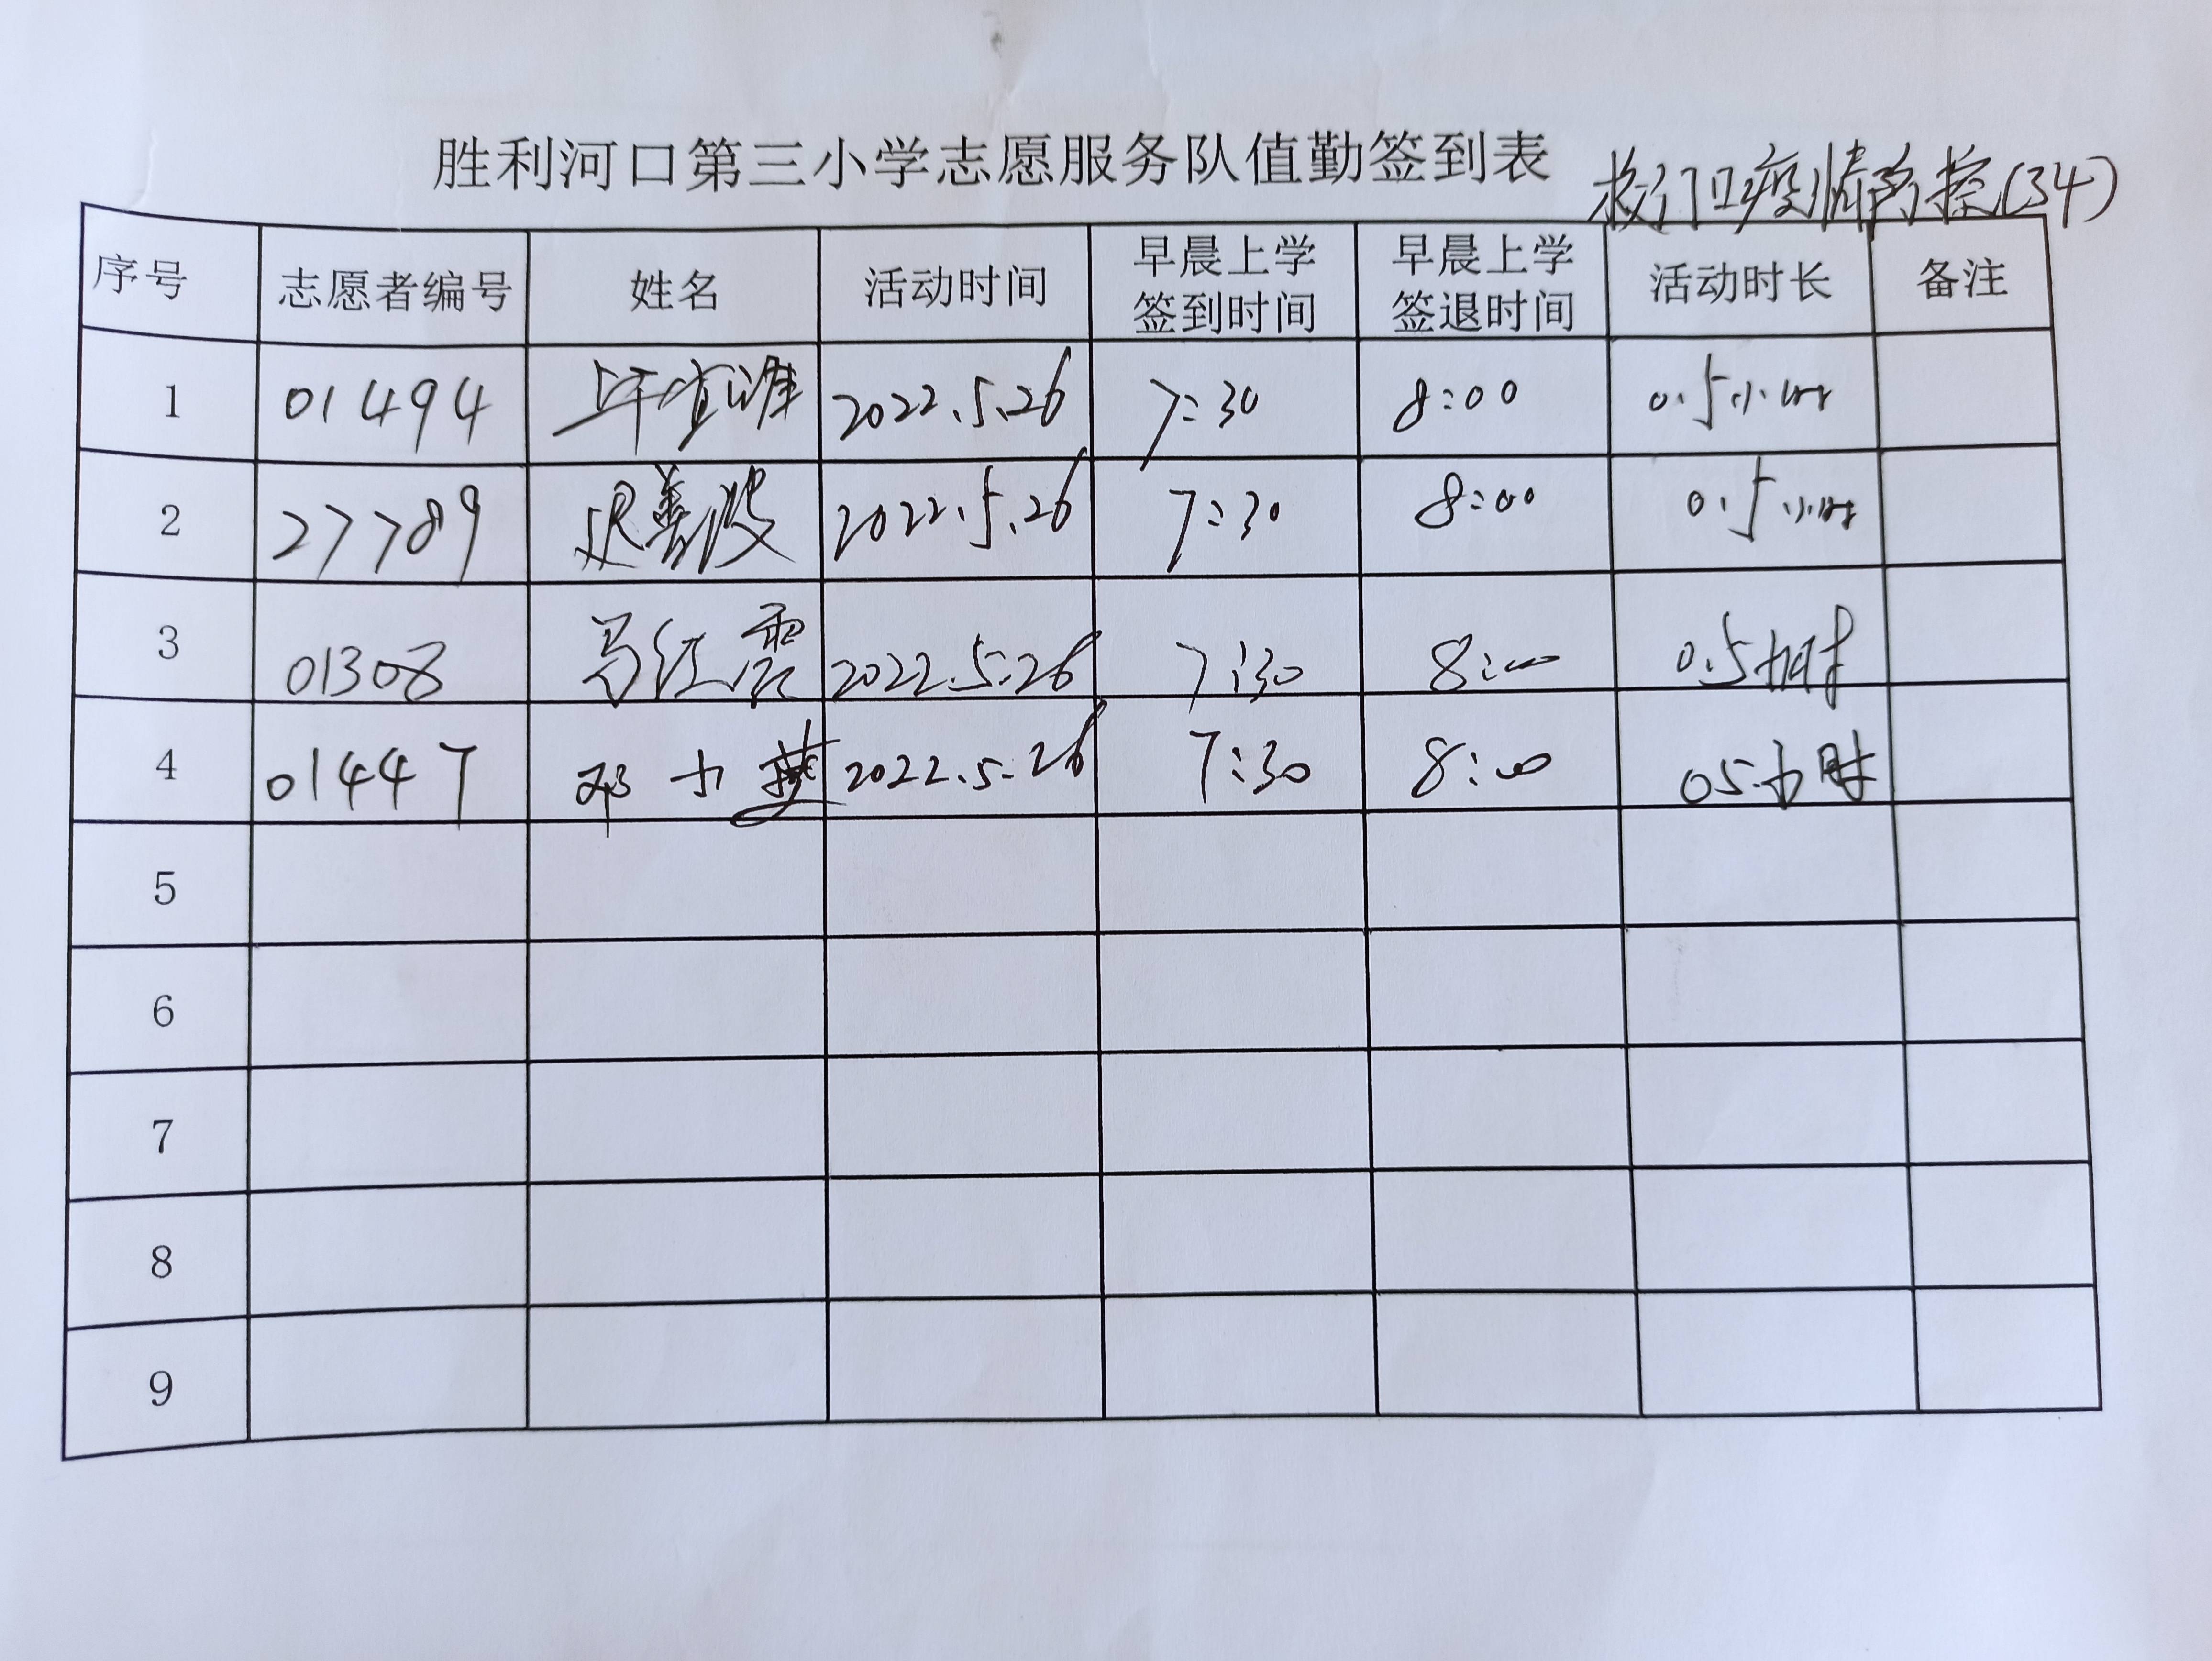 胜利河口第三小学志愿服务队值勤签到表 校门口疫情防控(34)
序号 志愿者编号 姓名 活动时间 早晨上学签到时间 早晨上学签退时间 活动时长 备注
1 01494 2022.5.26 7:30 8:00 0.5小时
2 27789 善波 2022.5.26 7:30 8:00 0.5小时
3 01308 马红霞 2022.5.26 7:30 8:00 0.5小时
4 01447 邓小燕 2022.5.26 7:30 8:00 05小时
5
6
7
8
9